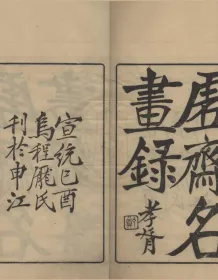 虛齋名
畫錄
孝胥
宣統己酉
烏程龐氏
刊於申江